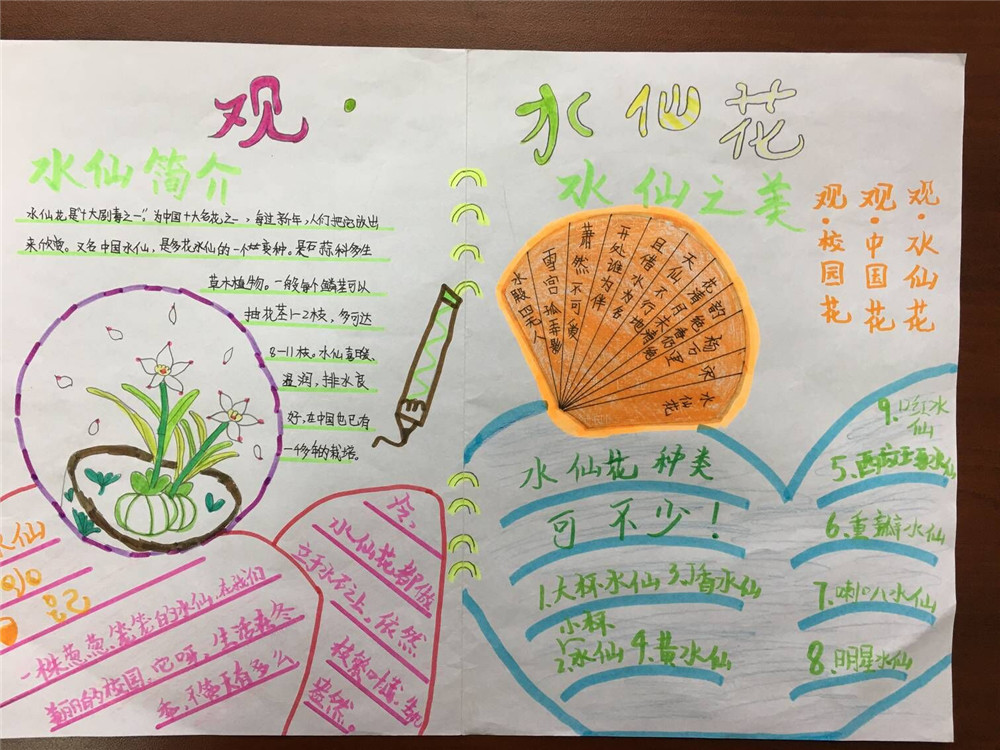 观·水仙花
水仙简介
水仙花是“十大剧毒之一”。为中国十大名花之一,每过新年,人们把它放出
来欣赏。又名中国水仙,是多花水仙的一个变种。是石蒜科多年生
草本植物。一般每个鳞茎可以
抽花茎1-2枝,多可达
8-11枝。水仙喜暖、
湿润,排水良
好,在中国也已有
一千多年的栽培。
水仙
日记
一株葱葱、笼笼的水仙,在我们
美丽的校园,它呀,生活在冬
季,不管天有多么
冷,
水仙花都傲
立于水石之上,依然
枝繁叶茂,生机
盎然。
水仙之美
观·水仙花
观·中国花
观·校园花
水仙花
宋
杨万里
韵绝香仍绝
花清月未清
天仙不行地
且借水为名
开处谁为伴
萧然不可
雪宫孤弄影
水殿四无人
水仙花种类
可不少!
1.大杯水仙
2.小杯水仙
3.丁香水仙
4.黄水仙
5.西方玉毒水仙
6.重瓣水仙
7.喇叭水仙
8.明星水仙
9.口红水仙